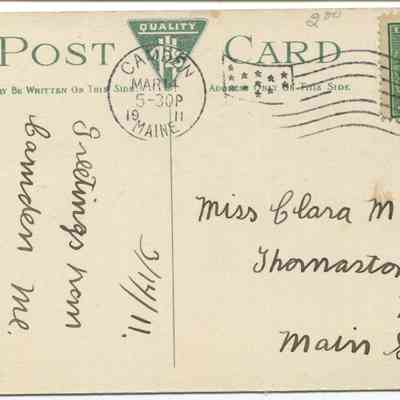 2 00
POST CARD
QUALITY
Y BE WRITTEN ON THIS SIDE
ADDRESS ONLY ON THIS SIDE.
CAMDEN
MAR 14
5-30P
19 11
MAINE
Greetings from
Camden Me.
3/14/11.
Miss Clara M
Thomaston
Main S